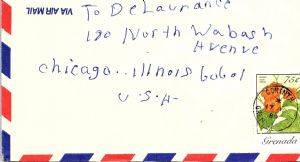 VIA AIR MAIL
To DeLaurance
180 North Wabash
Avenue
Chicago..Illinois 60601
U.S.A.
75¢
Grenada